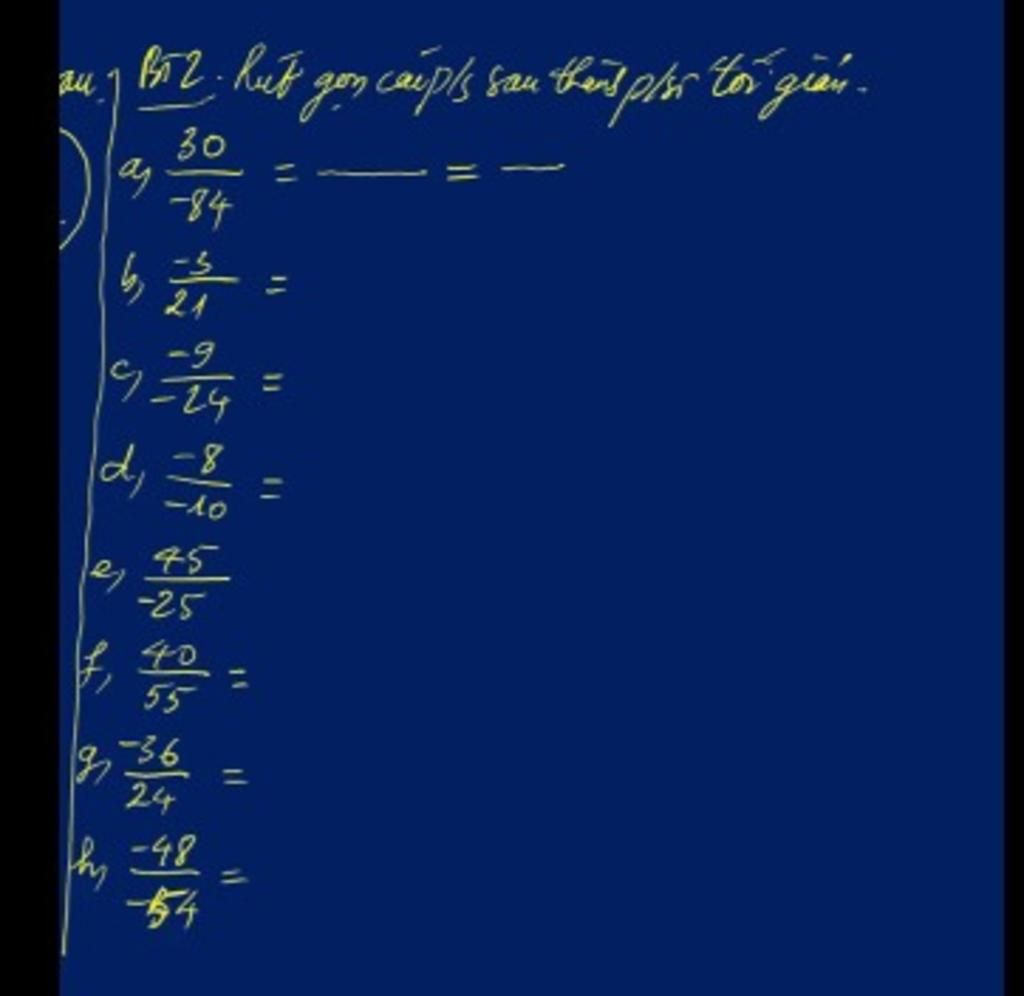 au.
BT2. Rút gọn các p/s sau thành p/số tối giản.
a, 30/-84 = — = —
b, -3/21 =
c, -9/-24 =
d, -8/-10 =
e, 45/-25
f, 40/55 =
g, -36/24 =
h, -48/-54 =